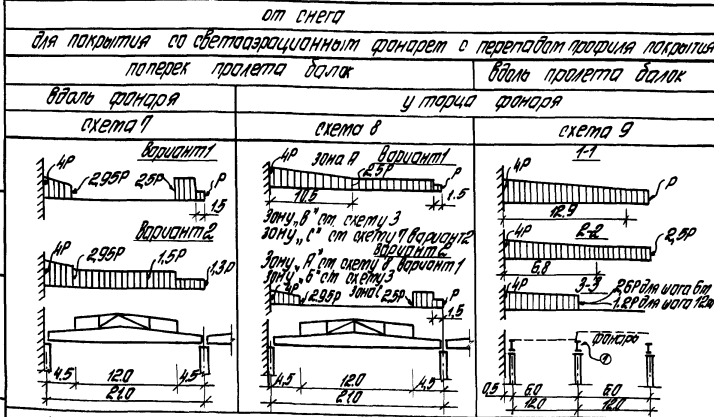 от снега
для покрытия со светоаэрационным фонарем с перепадом профиля покрытия
поперек пролета балок
вдоль пролета балок
вдоль фонаря
у торца фонаря
схема 7
схема 8
схема 9
Вариант 1
4P
2,95P
2,5P
P
1.5
Вариант 2
4P
2,95P
1,5P
1,3P
4,5
12.0
4,5
21.0
Вариант 1
зона А
4P
2,5P
P
10.5
1.5
Зону „В" ст. схему 3
Зону „С" ст схему 7 вариант 2
Вариант 2
Зону „А" ст схему 8 вариант 1
Зону „Б" ст схему 3
Зона С
4P
2,95P
2,5P
P
1,5
4,5
12.0
4,5
21.0
1-1
4P
P
12.9
2-2
4P
2,5P
6,8
3-3
4P
2,6P для шага 6т
1.2P для шага 12т
фонарь
0,5
6.0
6.0
12.0
12.0